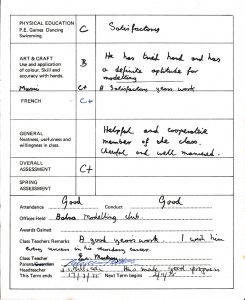 PHYSICAL EDUCATION
P.E. Games Dancing
Swimming.
C
Satisfactory
ART & CRAFT
Use and application
of colour. Skill and
accuracy with hands.
B
He has tried hard and has
a definite aptitude for
modelling
Music
C+
A Satisfactory years work.
FRENCH
C+
GENERAL
Neatness, usefulness and
willingness in class.
Helpful and cooperative
member of the class.
Cheerful and well mannered.
OVERALL
ASSESSMENT
C+
SPRING
ASSESSMENT
Attendance Good Conduct Good
Offices Held Modelling club.
Awards Gained
Class Teachers Remarks A good years work. I wish him
every success in his secondary career.
Class Teacher
Parent/Guardian
Headteacher Has made good progress
This Term ends Next Term begins